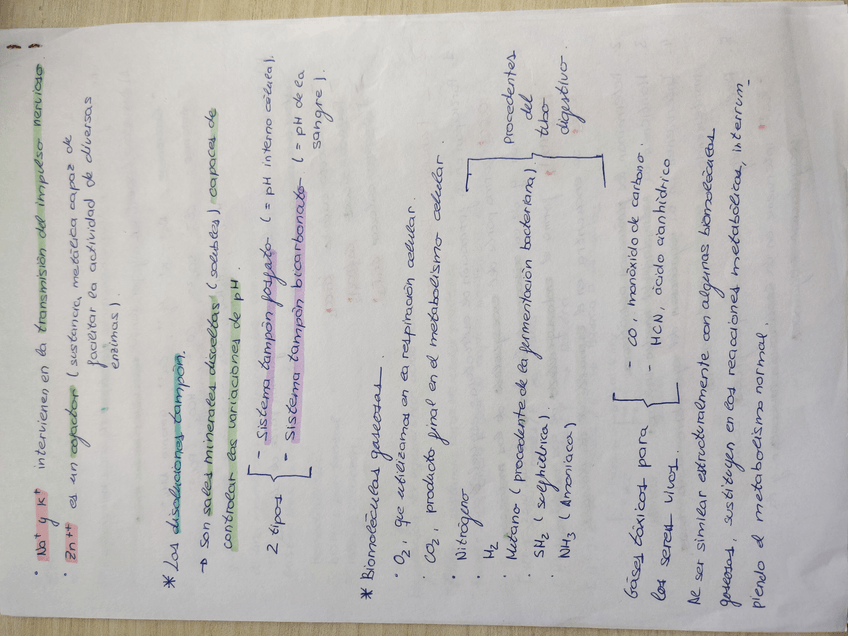 · Na⁺ y K⁺ intervienen en la transmisión del impulso nervioso.
· Zn⁺⁺ es un cofactor (sustancia, metálica capaz de
facilitar la actividad de diversas
enzimas).
* Las disoluciones tampón.
→ son sales minerales disueltas (solubles), capaces de
controlar las variaciones de pH.
2 tipos
- Sistema tampón fosfato (= pH interno célula).
- Sistema tampón bicarbonato (= pH de la
sangre).
* Biomoléculas gaseosas.
· O₂, que utilizamos en la respiración celular.
· CO₂, producto final en el metabolismo celular.
· Nitrógeno
· H₂
· Metano (procedente de la fermentación bacteriana).
· SH₂ (sulfhídrica).
· NH₃ (Amoníaca)
procedentes
del
tubo
digestivo.
Gases tóxicos para
los seres vivos.
- CO, monóxido de carbono.
- HCN, ácido cianhídrico
Al ser similar estructuralmente con algunas biomoléculas
gaseosas, sustituyen en las reacciones metabólicas, interrum-
piendo el metabolismo normal.